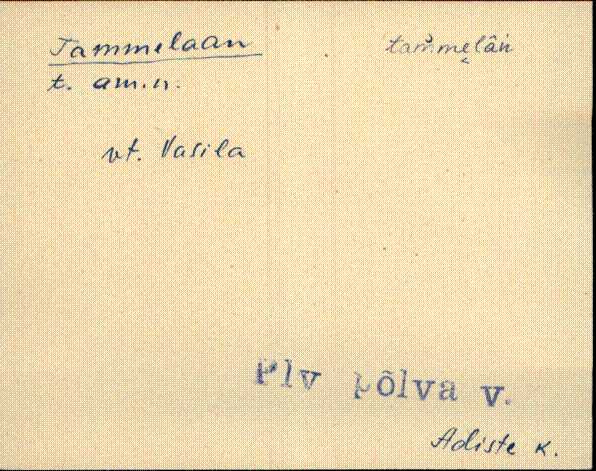 Tammelaan tam̆me̬lân
t. am.n.
vt. Vasila
Plv Põlva v.
Adiste k.